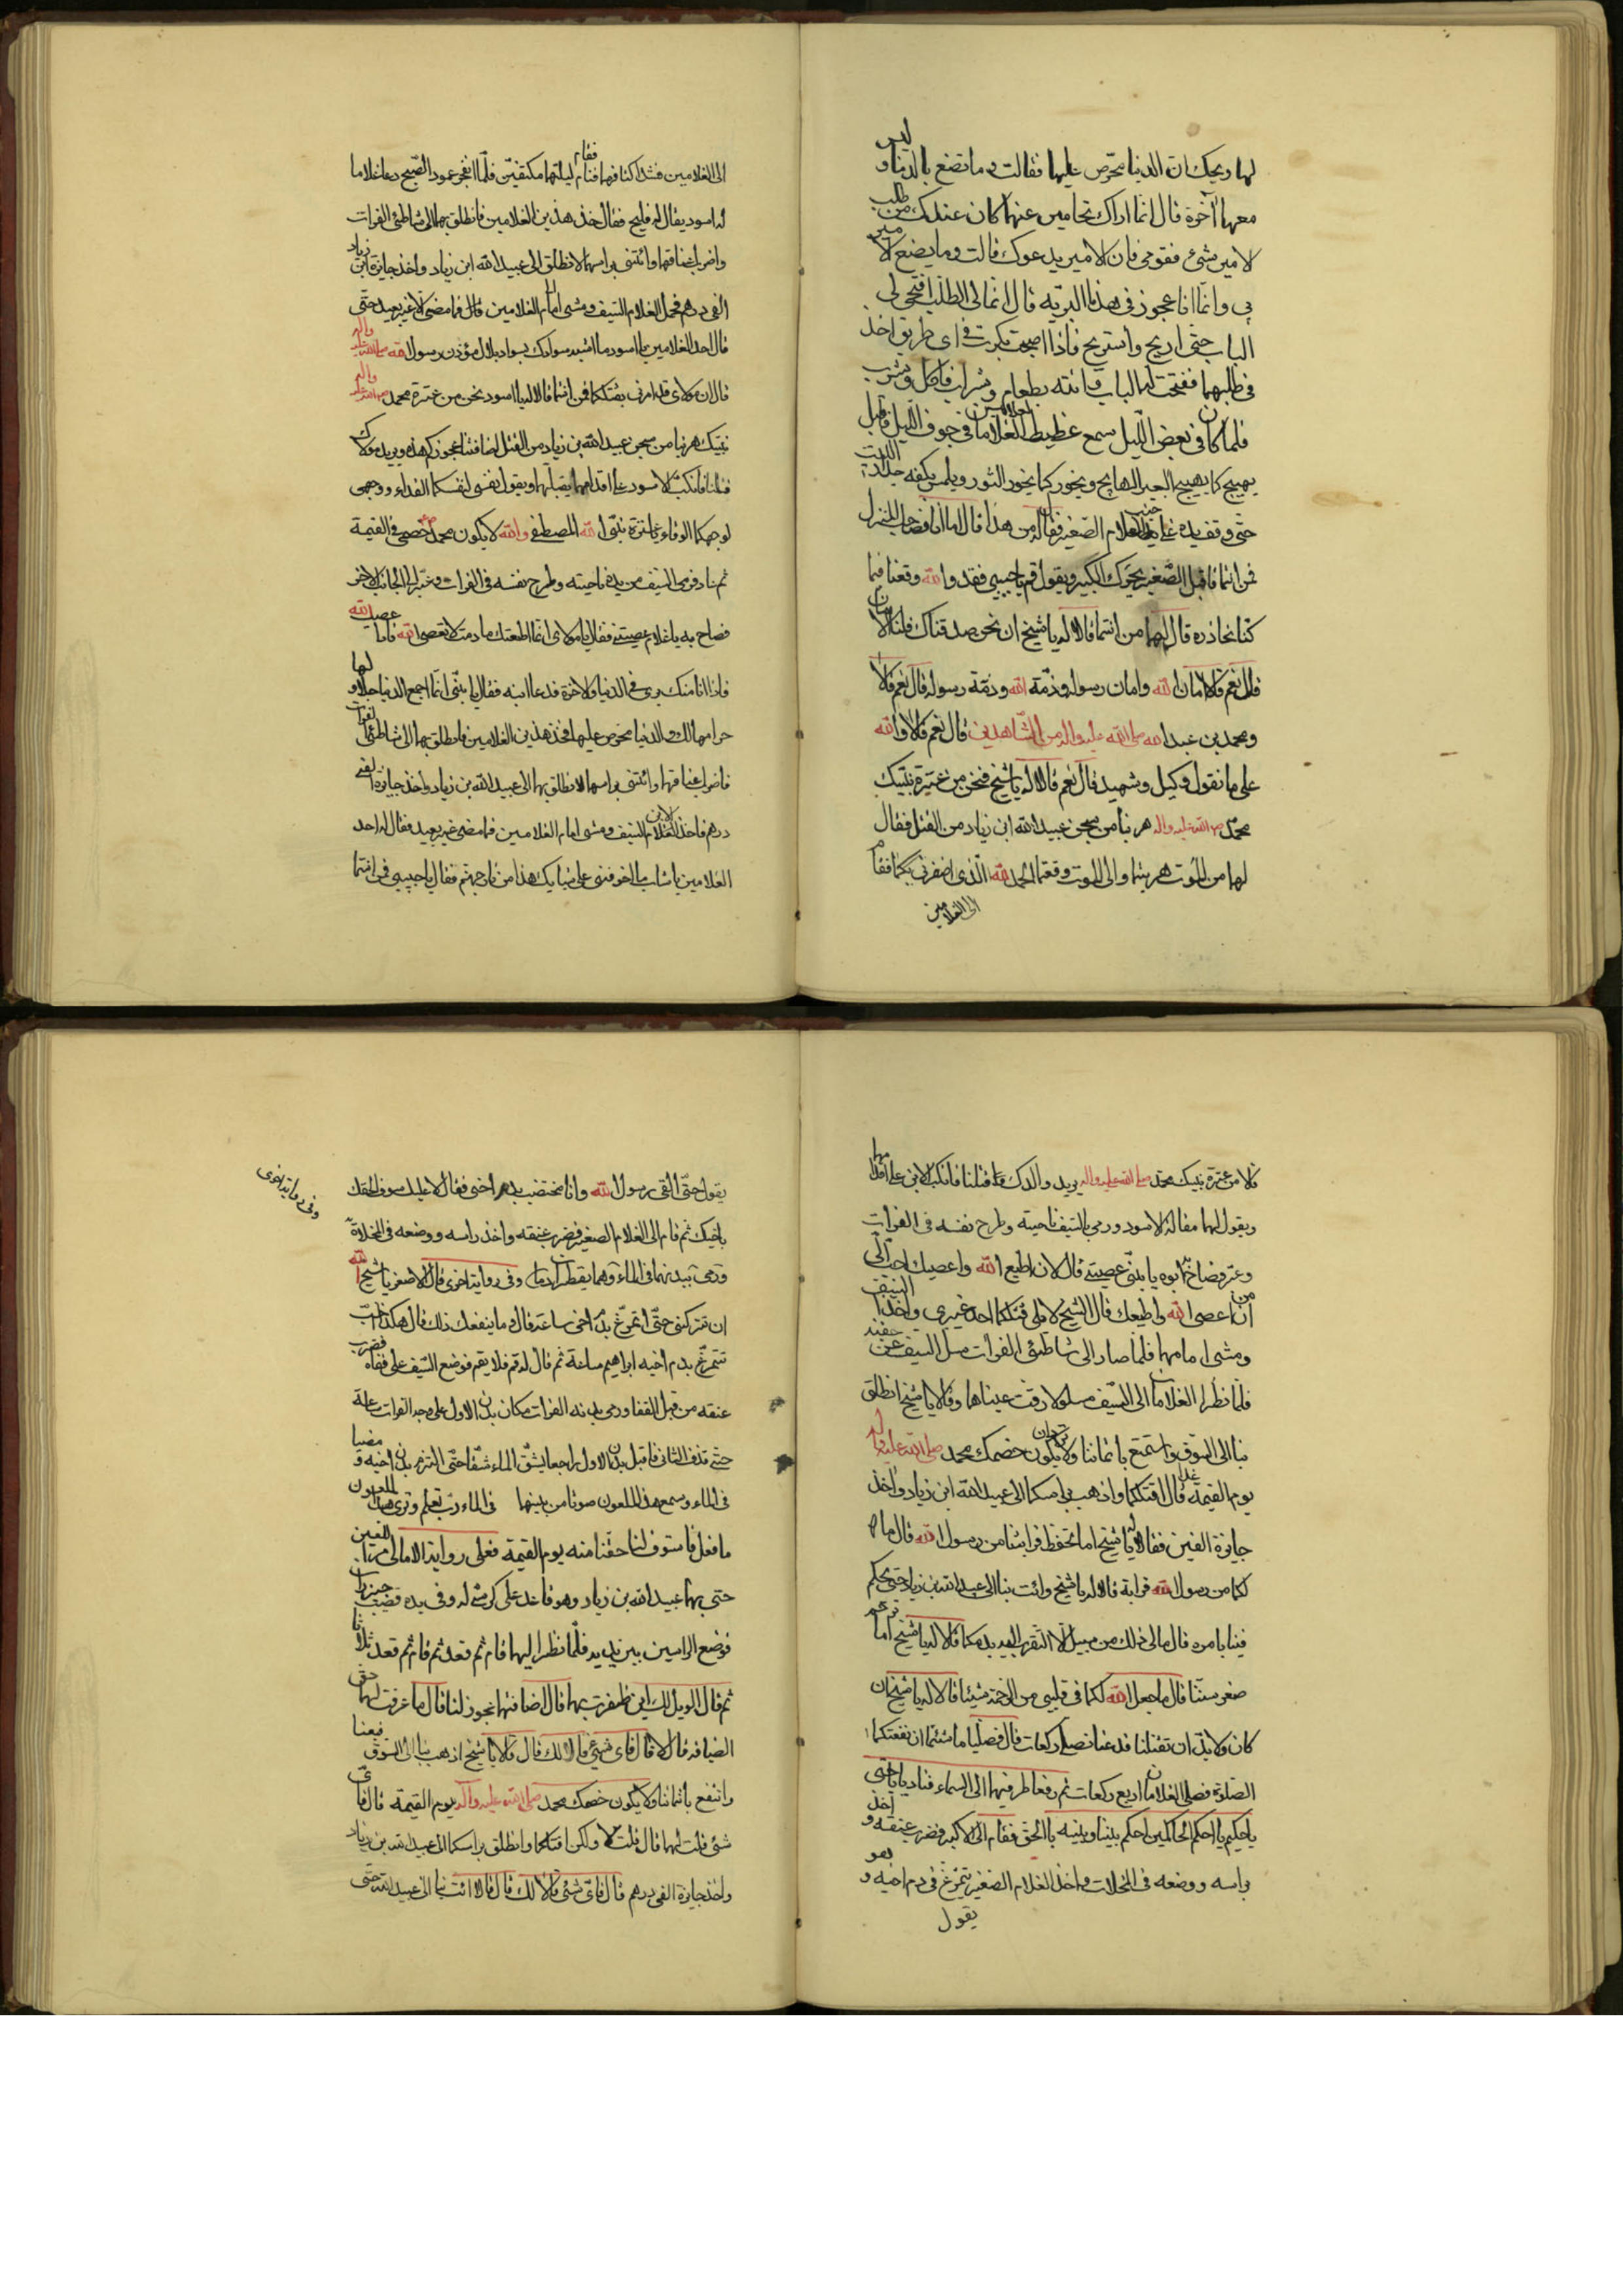 لها ويحك ان الدنيا محرّص عليها فقالت وما تصنع بالدنيا وليس
معها آخرة قال انما اراك تحامين عنهما كان عندك من طلب
الامير شئ فقومى فان الامير يدعوك قالت وما يصنع الامير
بى وانما انا عجوز فى هذه البريه قال انما لى الطلب افتحى لى
الباب حتى اريح واستريح فاذا اصبحت بكرت فى اى طريق اخذ
فى طلبهما ففتحت له الباب واتته بطعام وشراب فاكل وشرب
فلما كان فى بعض الليل سمع غطيط الغلامين فى جوف الليل فاقبل
يهيج كما يهيج البعير الهايج ويخور كما يخور الثور ويلمس بكفه جدار البيت
حتى وقف يده على جنب الغلام الصغير فقال له من هذا قال اما انا فصاحب المنزل
فمن انتما فاقبل الصغير يحرك الكبير ويقول قم يا حبيبى فقد والله وقعنا فيما
كنا نحاذره قال لهما من انتما قالا له يا شيخ ان نحن صدقناك فلنا الامان
قال نعم قالا امان الله وامان رسوله وذمة الله وذمة رسوله قال نعم قالا
ومحمد بن عبد الله صلى الله عليه واله من الشاهدين قال نعم قالا والله
على ما نقول وكيل وشهيد قال نعم قالا له يا شيخ فنحن من عترة نبيك
محمد صلى الله عليه واله هربنا من سجن عبيد الله ابن زياد من القتل فقال
لهما من الموت هربتما والى الموت وقعتما الحمد لله الذى اضفرنى بكما فقام
الى الغلامين
الى الغلامين فشد اكتافهما فقام فنام ليلتهما مكتفين فلما انفجر عمود الصبح دعا غلاما
له اسود يقال له فليح فقال خذ هذين الغلامين فانطلق بهما الى شاطئ الفرات
واضرب اعناقهما وائتنى براسهما لانطلق الى عبيد الله ابن زياد واخذ جايزة ابن زياد
الفى درهم فحمل الغلام السيف ومشى امام الغلامين قال فما مضى الا غير بعيد حتى
قال احد الغلامين يا اسود ما اشبه سوادك بسواد بلال مؤذن رسول الله صلى الله عليه واله
قال ان مولاى قد امرنى بقتلكما فمن انتما قالا له يا اسود نحن من عترة محمد صلى الله عليه واله
نبيك هربنا من سجن عبيد الله بن زياد من القتل اضافتنا عجوزكم هذه ويريد مولاك
قتلنا فانكب الاسود على اقدامهما يقبلهما ويقول نفسى لنفسكما الفداء ووجهى
لوجهكما الوقاء يا عترة نبى الله المصطفى والله لا يكون محمد خصمى فى القيمة
ثم نادفرمى السيف من يده ناحيته وطرح نفسه فى الفرات وعبر الى الجانب الاخر
فصاح به يا غلام عصيتنى فقال يا مولاى انما اطعتك ما دمت لا تعصى الله فاذا عصيت الله
فاذا انا منك برى فى الدنيا والاخرة فدعا ابنه فقال يا بنى انما اجمع الدنيا حلالها و
حرامها لك والدنيا محرص عليها فخذ هذين الغلامين فانطلق بهما الى شاطئ الفرات
فاضرب اعناقهما وائتنى براسهما لانطلق بهما الى عبيد الله بن زياد واخذ جايزة الفى
درهم فاخذ الابن السيف ومشى امام الغلامين فما مضى غير بعيد فقال له احد
الغلامين يا شاب ما اخوفنى على شبابك هذا من نار جهنم فقال يا حبيبى فمن انتما
قالا من عترة نبيك محمد صلى الله عليه واله يريد والدك قتلنا فانكب الابن على اقدامهما
ويقول لهما مقالة الاسود ورمى بالسيف ناحيته وطرح نفسه فى الفرات
وعبر فصاح ابوه يا بنى عصيتنى قال لان اطيع الله واعصيك احب الىّ
من ان اعصى الله واطيعك قال الشيخ لا يلى قتلكما احد غيرى واخذ السيف
ومشى امامهما فلما صار الى شاطئ الفرات سل السيف عن جفنه
فلما نظرا الغلامان الى السيف مسلولا رقت عيناهما وقالا يا شيخ انطلق
بنا الى السوق واستمتع باثماننا ولا تريد ان يكون خصمك محمد صلى الله عليه واله
يوم القيمة غدا قال اقتلكما واذهب براسكما الى عبيد الله ابن زياد واخذ
جايزة الفين فقالا له يا شيخ اما تحفظ قرابتنا من رسول الله قال ما
لكما من رسول الله قرابة قالا له يا شيخ وائت بنا الى عبيد الله بن زياد حتى يحكم
فينا بامره قال مالى ذلك من سبيل الا التقرب اليه بدمكما قالا له يا شيخ اما ترحم
صغر سننا قال ما جعل الله لكما فى قلبى من الرحمة شيئا قالا له يا شيخ ان
كان ولا بد ان تقتلنا فدعنا نصلى ركعات قال فصليا ما شئتما ان نفعتكما
الصلوة فصلى الغلامان اربع ركعات ثم رفعا طرفيهما الى السماء فناديا يا حى
يا حكيم يا احكم الحاكمين احكم بيننا وبينه بالحق فقام الى الاكبر فضرب عنقه واخذ
براسه ووضعه فى المخلات واخذ الغلام الصغير يتمرغ فى دم اخيه وهو
يقول
يقول حتى القى رسول الله وانا مختضب بدم اخى فقال لا عليك سوف الحقك
باخيك ثم قام الى الغلام الصغير فضرب عنقه واخذ راسه ووضعه فى المخلاة
ورمى ببدنهما فى الماء وهما يقطران دما وفى رواية اخرى قال الاصغر يا شيخ الله
ان تتركنى حتى اتمرغ بدم اخى ساعة قال وما ينفعك ذلك قال هكذا احب
تتمرغ بدم اخيه ابراهيم ساعة ثم قال له قم فلا يقم فوضع السيف على قفاه فضرب
عنقه من قبل القفا ورمى بدنه الفرات مكان بدن الاول على وجه الفرات ساعة
حتى قذف الثانى فاقبل بدن الاول راجعا يشق الماء شقا حتى التزم بدن اخيه ومضيا
فى الماء وسمع هذا الملعون صوتا من بينهما فى الماء رب تعلم وترى هذا الملعون
ما فعل فاستوف لنا حقنا منه يوم القيمة فعلى رواية الامالى مر اللعين
حتى بهما عبيد الله بن زياد وهو قاعد على كرسى له وفى يده قضيب خيزران
فوضع الراسين بين يديه فلما نظر اليهما قام ثم قعد ثم قام ثم قعد ثلاثا
ثم قال الويل لك اين ظفرت بهما قال اضافتهما عجوز لنا قال ما عرفت لهما حق
الضيافه قال لا قال فاى شئ قالا لك قال قالا يا شيخ اذهب بنا الى السوق فبعنا
وانتفع باثماننا ولا يكون خصمك محمد صلى الله عليه واله يوم القيمة قال فاى
شئ قلت لهما قال قلت لا ولكن اقتلكما وانطلق براسكما الى عبيد الله بن زياد
واخذ جايزة الفى درهم قال فاى شئ قالا لك قال قالا ائت بنا الى عبيد الله حتى
وفى رواية اخرى